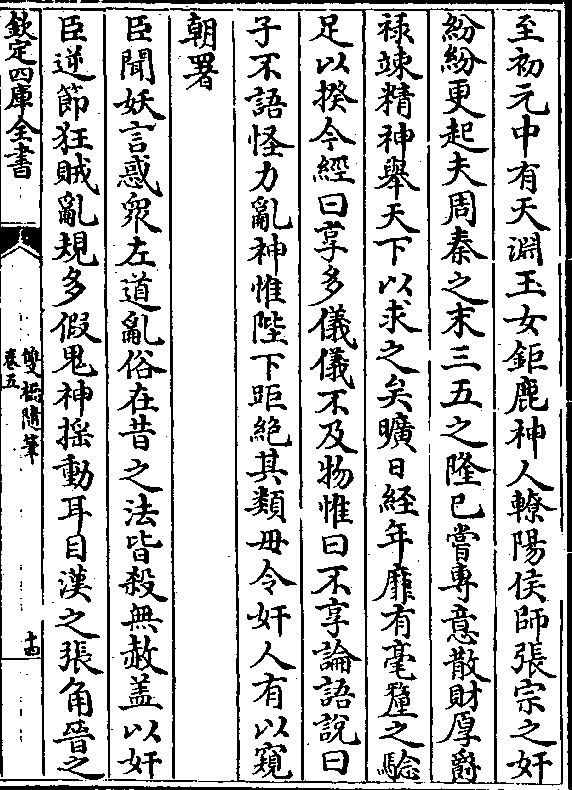 至初元中有天淵玉女鉅鹿神人轑陽侯師張宗之奸
紛紛更起夫周秦之末三五之隆已嘗専意散財厚爵
禄竦精神舉天下以求之矣曠日經年靡有毫釐之驗
足以揆今經曰享多儀儀不及物惟曰不享論語說曰
子不語怪力亂神惟陛下距絶其類毋令奸人有以窺
朝署
臣聞妖言惑衆左道亂俗在昔之法皆殺無赦盖以奸
臣逆節狂賊亂規多假鬼神揺動耳目漢之張角晉之
欽定四庫全書
雙橋隨筆
卷五
十四